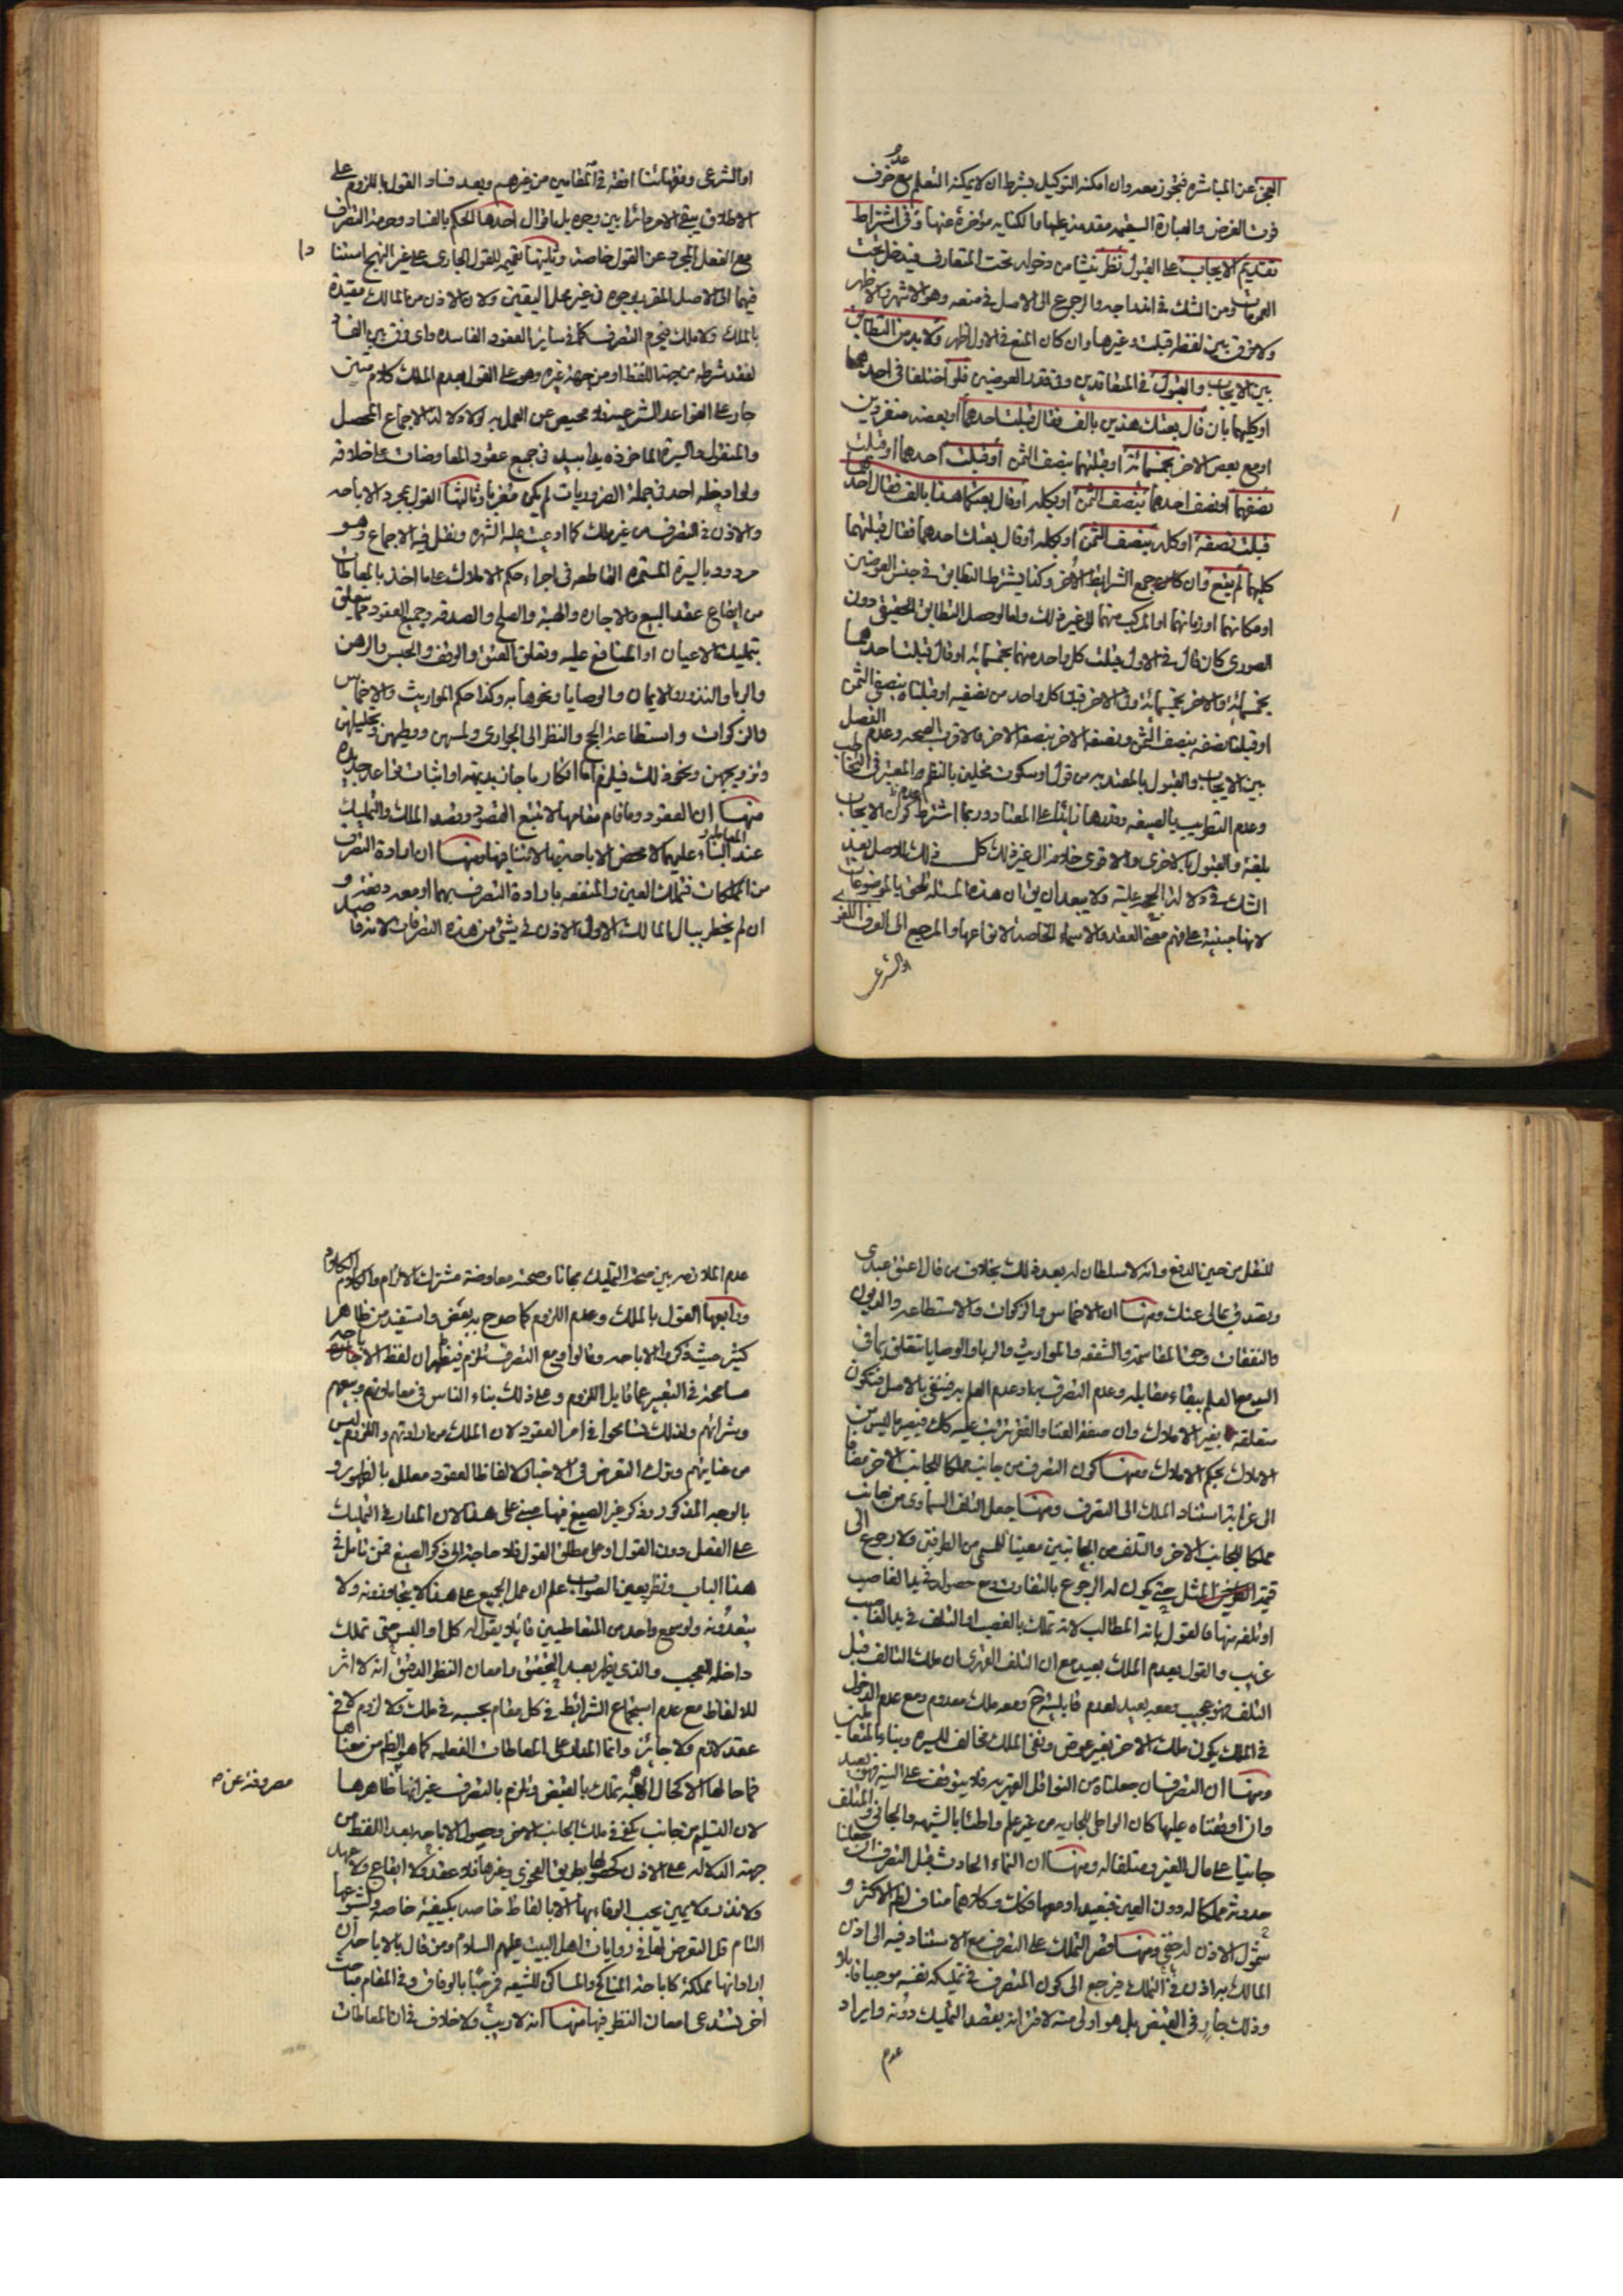 العجز عن المباشرة فتجوز معه وان امكنه التوكيل بشرط ان لا يمكنه التعلم مع عدم خوف
فوت الغرض والعبارة السقيمة مقدمة عليها والكتابه مؤخرة عنها وفى اشتراط
تقديم الايجاب على القبول نظر ينشا من دخوله تحت المتعارف فيدخل تحت
العمومات ومن الشك فى اندراجه والرجوع الى الاصل فى منعه وهو الاشهر والاظهر
ولا فرق بين لفظ قبلت وغيرها وان كان المنع فى الاول اظهر ولا بد من التطابق
بين الايجاب والقبول فى المتعاقدين وفى قدر العوضين فلو اختلفا فى احدهما
او كليهما بان قال بعتك هذين بالف فقال قبلت احدهما او بعضه منفردين
او مع بعض الاخر بخمسمائة او قبلتهما بنصف الثمن او قبلت احدهما او قبلت
نصفهما او نصف احدهما بنصف الثمن او بكله او قال بعتكما هذا بالف فقال احدهما
قبلت نصفه او كله بنصف الثمن او بكله او قال بعتك احدهما فقال قبلتهما
كليهما لم يقع وان كان جمع الشرايط الأخر وكذا يشترط التطابق فى جنس العوضين
او مكانهما او زمانهما او المركب منهما الى غير ذلك ولو حصل التطابق الحقيقى دون
الصورى كان قال فى الاول قبلت كل واحد منهما بخمسمائه او قال قبلت احدهما
بخمسمائة والاخر بخمسمائة وفى الاخر قبل كل واحد من نصفيه او قبلناه بنصفى الثمن
او قبلت نصفه بنصف الثمن ونصفه الاخر بنصفه الاخر فالاقرب الصحه وعدم الفصل
بين الايجاب والقبول بالمعتد به من قول او سكوت مخلين بالنظم المعتبر فى التخاطب
وعدم التطريب بالصيغه ومدها زائدا على المعتاد وربما اشترط عدم كون الايجاب
بلغة والقبول بالاخرى والاقوى خلافه الى غير ذلك كل ذلك للاصل بعد
الشك فى دلالة الحجه عليه ولا يبعد ان يقال ان هذه المسئله تلحق بالموضوعات
لانها مبنية على فهم معنى العقد والاسماء الخاصة لانواعها والمرجع الى العرف اللغوى
او الشرعى
او الشرعى وفقهائنا افقه فى المقامين من غيرهم وبعد فساد القول باللزوم على
الاطلاق يبقى الامر دائرا بين وجوه بل اقوال احدها الحكم بالفساد وحرمة التصرف
مع الفعل المجرد عن القول خاصة وثانيها تعميم للقول الجارى على غير النهج استنادا
فيهما الى الاصل المقرر بوجوه فى غير محل اليقين ولان الاذن من المالك مقيدة
بالملك ولا ملك فيحرم التصرف كما فى سائر العقود الفاسده واى فرق بين الفساد
لفقد شرطه من جهة اللفظ او من جهة غيره وهو على القول بعدم الملك كلام متين
جار على القواعد الشرعيه لا محيص عن العمل به لولا دلالة الاجماع المحصل
والمنقول والسيرة الماخوذه يدا بيد فى جميع عقود المعاوضات على خلافه
ولو ادخله احد فى جملة الضروريات لم يكن مغربا وثالثها القول بمجرد الاباحه
والاذن فى التصرف من غير ملك كما ادعيت عليه الشهره ونقل فيه الاجماع وهو
مردود بالسيرة المستمرة القاطعه فى اجراء حكم الاملاك على ما اخذ بالمعاطات
من ايقاع عقد البيع والاجاره والهبة والصلح والصدقه وجميع العقود مما يتعلق
بتمليك الاعيان او المنافع عليه وتعلق العتق والوقف والحبس والرهن
والربا والنذور والايمان والوصايا ونحوها به وكذا حكم المواريث والاخماس
والزكوات واستطاعة الحج والنظر الى الجوارى ولمسهن ووطيهن وتحليلهن
وتزويجهن ونحو ذلك فيلزم اما انكار ما جاز بديهة او اثبات قواعد جديده
منها ان العقود وما قام مقامها لا تتبع القصود وقصد الملك والتمليك
عند البناء المعاملة عليهما لا محض الاباحة منها ان ارادة التصرف
من المملكات فتملك العين والمنفعه بارادة التصرف بهما او معه دفعة و
ان لم يخطر ببال المالك الاول الاذن فى شئ من هذه التصرفات لانه قاصد
للنقل من حين الدفع وانه لا سلطان له بعد ذلك بخلاف من قال اعتق عبدى
وتصدق بمالى عنك ومنها ان الاخماس والزكوات والاستطاعه والديون
والنفقات وحق المقاسمة والشفعه والمواريث والربا والوصايا تتعلق بما فى
اليد مع العلم ببقاء مقابله وعدم التصرف به او عدم العلم به فينفى بالاصل فتكون
متعلقة بغير الاملاك وان صفة الغنا والفقر تترتب عليه كذلك فيصير ما ليس من
الاملاك بحكم الاملاك ومنها كون التصرف من جانب مملكا للجانب الاخر مضافا
الى غرابة استناد الملك الى التصرف ومنها جعل التلف السماوى من جانب
مملكا للجانب الاخر والتلف من الجانبين معينا للمسمى من الطرفين ولا رجوع الى
قيمة المثل حتى يكون له الرجوع بالتفاوت ومع حصوله فى يد الغاصب
او تلفه فيها فالقول بانه المطالب لانه تملك بالغصب او التلف فى يد الغاصب
غريب والقول بعدم الملك بعيد مع ان التلف القهرى ان ملك التالف قبل
التلف فهو عجيب ومعه بعيد لعدم قابليته ح وبعده ملك معدوم ومع عدم الدخول
فى الملك يكون ملك الاخر بغير عوض ونفى الملك مخالف للسيره وبناء المتعاطيين
ومنها ان التصرف ان جعلناه من النواقل القهريه فلا يتوقف على النية فهو بعيد
وان اوقفناه عليها كان الواطى للجاريه من غير علم واطئا بالشبهه والجانى والمتلف
جانيا على مال الغير ومتلفا له ومنها ان النماء الحادث قبل التصرف ان جعلنا
حدوثه مملكا له دون العين فبعيد او معها فكذلك وكلاهما مناف لظاهر الاكثر و
شمول الاذن له خفى ومنها قصر التملك على التصرف مع الاستناد فيه الى اذن
المالك به اذن فى التملك فيرجع الى كون المتصرف فى تمليكه نفسه موجبا قابلا
وذلك جار فى القبض بل هو اولى منه لاقترانه بقصد التمليك دونه وايراد
عدم
عدم الملازمه بين صحة التمليك مجانا وصحته معاوضة مشترك الالزام والكلام الكلام
ورابعها القول بالملك وعدم اللزوم كما صرح به بعض واستفيد من ظاهر
كثير حيث ذكروا الاباحه وقالوا ومع التصرف تلزم فيظهر ان لفظ الاباحة
مسامحة فى التعبير عما قابل اللزوم وعلى ذلك بناء الناس فى معاملاتهم وبيعهم
وشرائهم ولذلك تسامحوا فى امر العقود لان الملك من ارادتهم واللزوم ليس
من عنايتهم وترك التعرض فى الاخبار لالفاظ العقود معلل بالظهور و
بالوجه المذكور وذكر غير الصيغ فيها مبنى على هذا لان المدار فى التمليك
على الفعل دون القول او على مطلق القول فلا حاجة الى ذكر الصيغ فمن تامل فى
هذا الباب ونظر بعين الصواب علم ان عمل الجميع على هذا لا يتجاوزونه ولا
يتعدونه ولو سمع واحد من المتعاطيين قائلا يقول له كل او البس حتى تملك
داخله العجب والذى يظهر بعد التحقيق وامعان النظر الدقيق انه لا اثر
للالفاظ مع عدم استجماع الشرائط فى كل مقام بحسبه فى ملك ولا لزوم لا فى
عقد لازم ولا جائز وانما المدار على المعاطات الفعليه كما هو الظاهر من معناها
فما حالها الا كحال الهبة تملك بالقبض وتلزم بالتصرف غير انها ظاهرها
مصروفة عن م
لان التسليم من جانب يكفى فى ملك الجانب الاخر وحصول الاباحه بعد اللفظ من
جهة الدلاله على الاذن كحصولها بطريق الفحوى وغيرها فلا عقد ولا ايقاع ولا عهد
ولا نذر ولا يمين يجب الوفاء بها الا بالفاظ خاصه بكيفية خاصه ولشيوعها
التام قل التعرض لها فى روايات اهل البيت عليهم السلام ومن قال بالاباحه ان
اراد انها مملكة كاباحة المناكح والمساكن للشيعه فمرحبا بالوفاق وفى المقام مباحث
اخر تستدعى امعان النظر فيها منها انه لا ريب ولا خلاف فى ان المعاطات